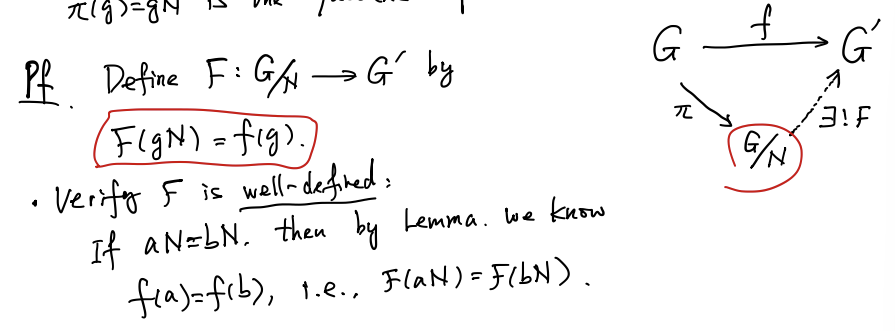 π(g)=gN is the
Pf. Define F: G/N → G' by
F(gN) = f(g).
• Verify F is well-defined:
If aN=bN. then by Lemma. we know
f(a)=f(b), i.e., F(aN)=F(bN).
G f G'
π ∃!F
G/N